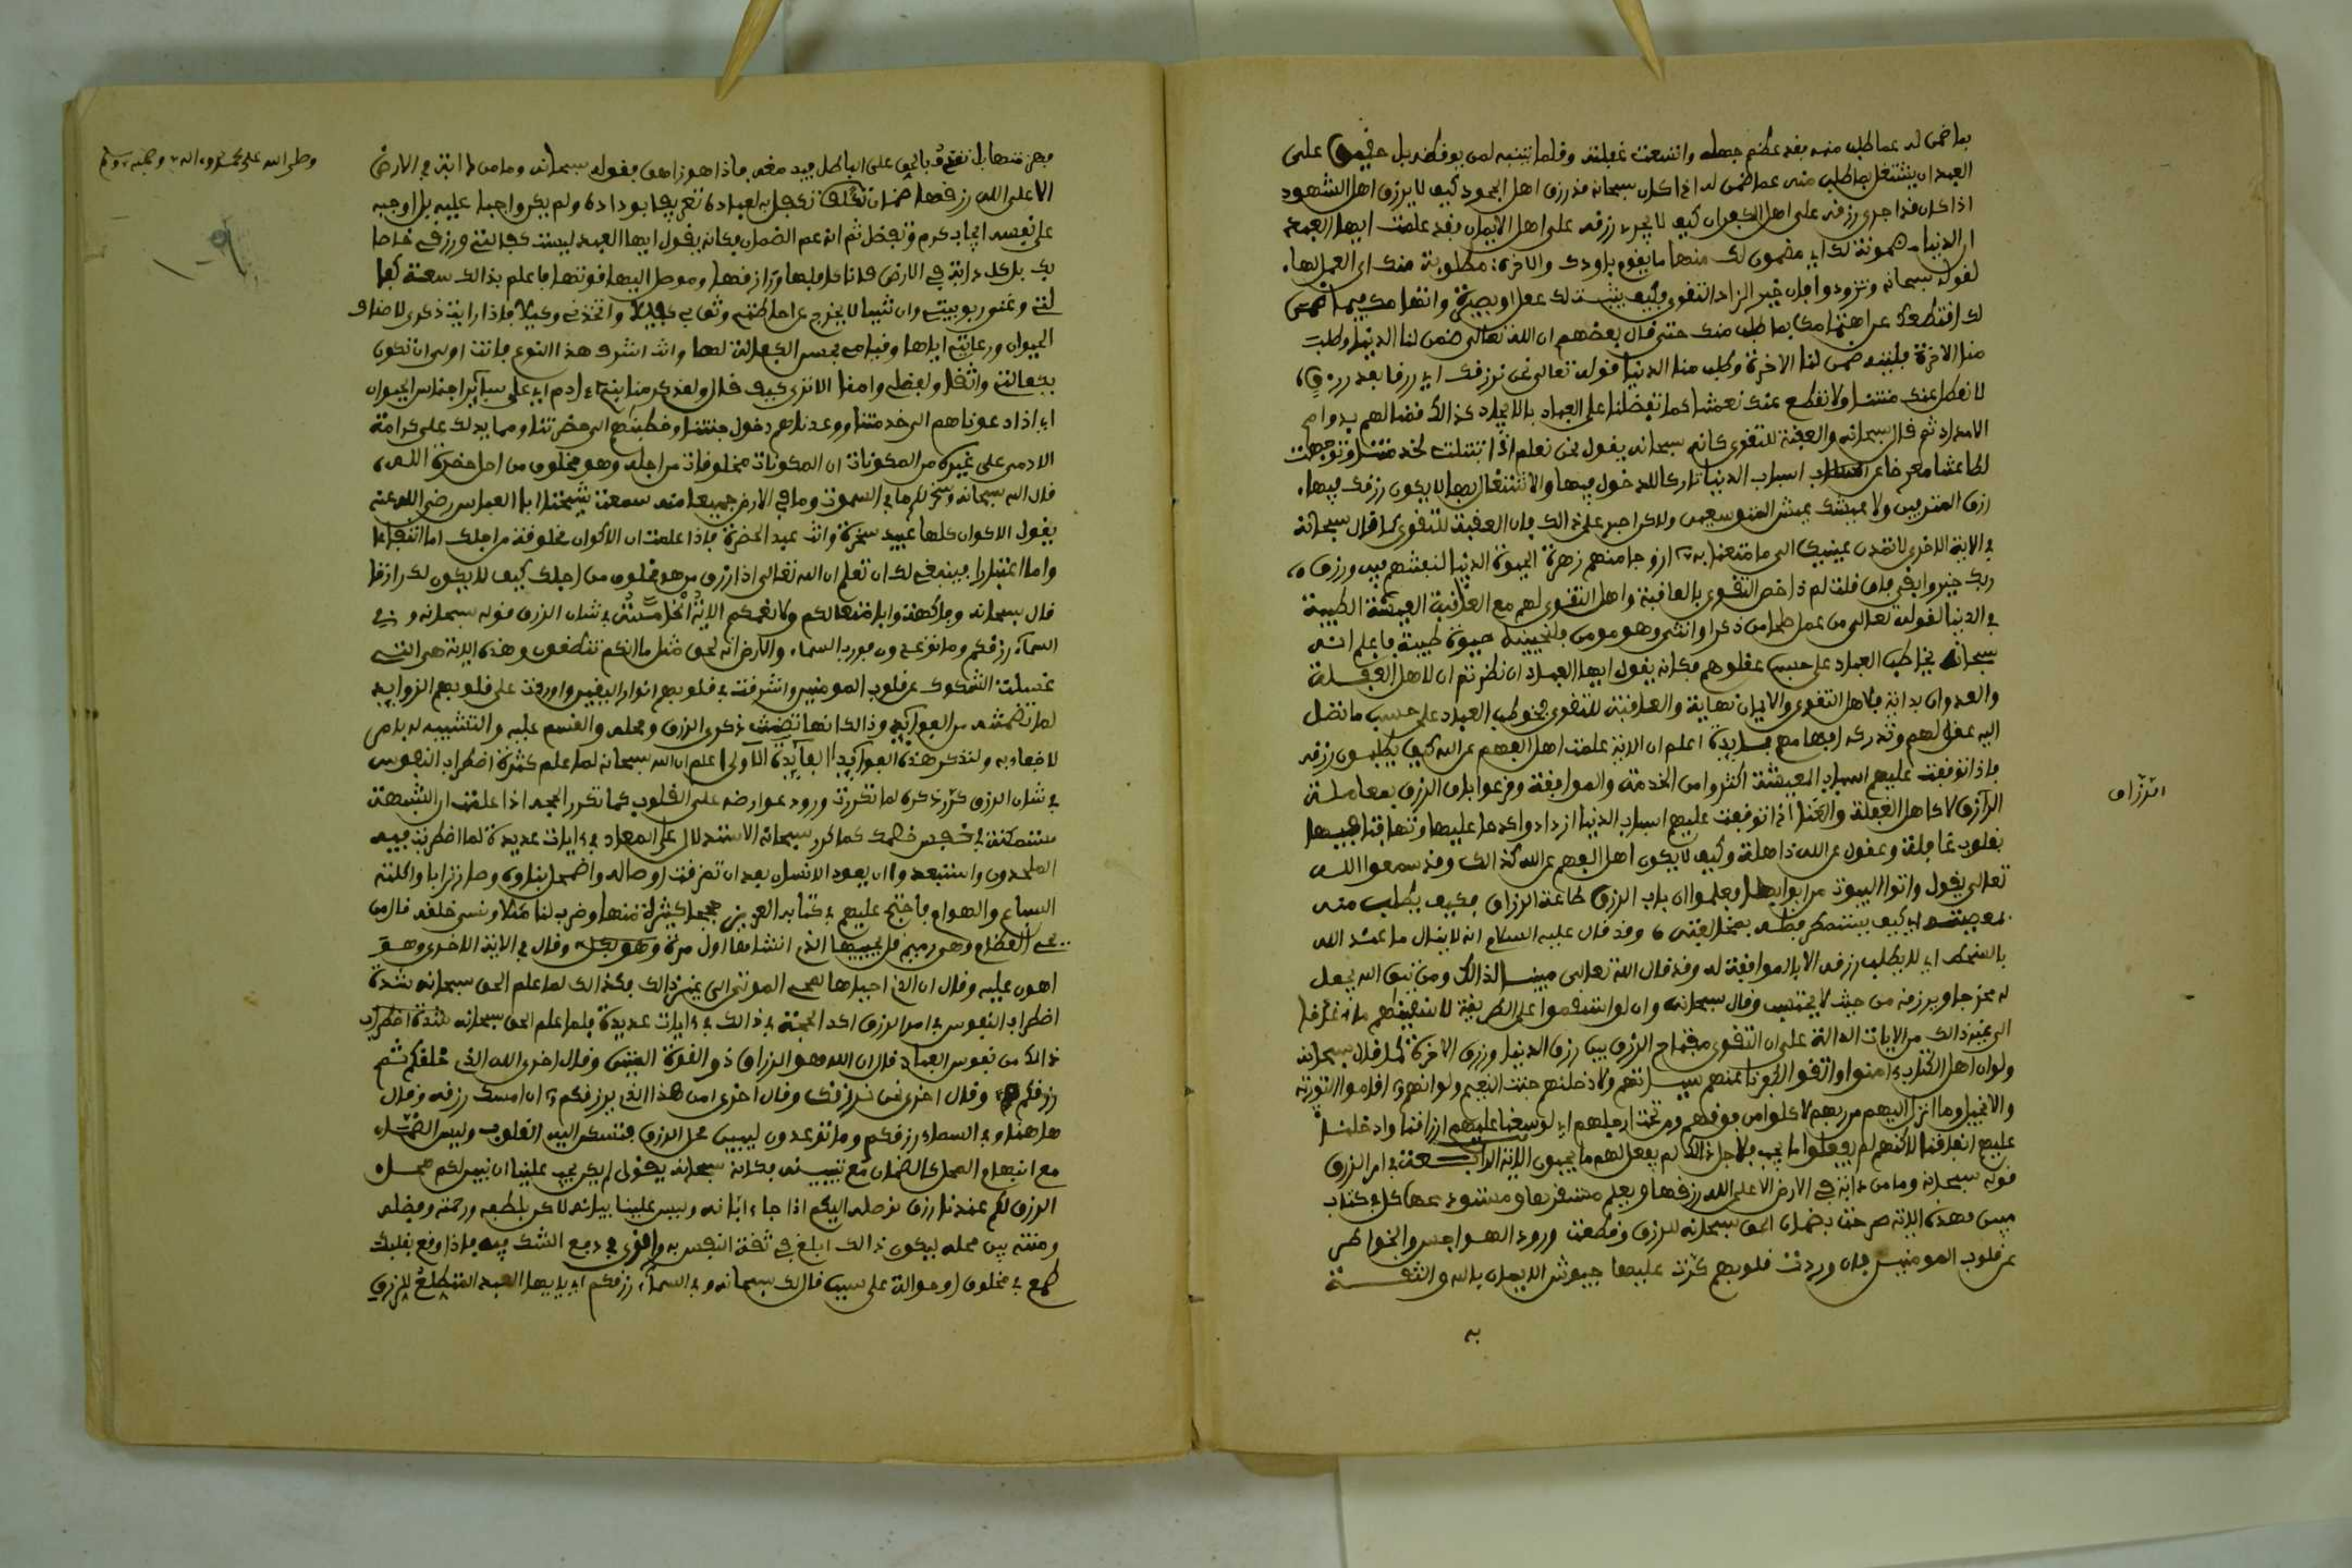 بما ضمن له عما طلب منه فقد عظم جهله واتسعت غفلته وقلما يتنبه لمن يوقظه بل حقيق على
العبد ان يشتغل بما طلب منه عما ضمن له اذا كان سبحانه قد رزق اهل الجحود كيف لا يرزق اهل الشهود
اذا كان قد اجرى رزقه على اهل الكفران كيف لا يجرى رزقه على اهل الايمان فقد علمت ايها العبد
ان الدنيا مضمونة لك اي مضمون لك منها ما يقوم باودك والاخرة مطلوبة منك اي العمل لها
لقوله سبحانه وتزودوا فان خير الزاد التقوى فكيف يثبت لك عقل او بصيرة واهتمامك فيما ضمن
لك اقتطعك عن اهتمامك بما طلب منك حتى قال بعضهم ان الله تعالى ضمن لنا الدنيا وطلب
منا الاخرة فليته ضمن لنا الاخرة وطلب منا الدنيا قوله تعالى نحن نرزقك اي رزقا بعد رزق
لا نعطل عنك منتنا ولا نقطع عنك نعمتنا كما تفضلنا على العباد بالايجاد كذالك قمنا لهم بدوام
الامداد ثم قال سبحانه والعقبة للتقوى كانه سبحانه يقول نحن نعلم اذا ابتتلت لخدمتنا وتوجهت
لطاعتنا معرضا عن اسباب الدنيا تاركا للدخول فيها والاشتغال بها لا يكون رزقك فيها
رزق المترفين ولا عيشك عيش المتوسعين ولاكن اصبر على ذالك فان العقبة للتقوى كما قال سبحانه
في الاية الاخرى لا تمدن عينيك الى ما متعنا به ازوجا منهم زهرة الحيوة الدنيا لنفتنهم فيه ورزق
ربك خير وابقى فان قلت لم ذا خص التقوى بالعاقبة واهل التقوى لهم مع العاقبة العيشة الطيبة
في الدنيا لقوله تعالى من عمل صالحا من ذكر او انثى وهو مومن فلنحيينه حيوة طيبة فاعلم انه
سبحانه يخاطب العباد على حسب عقولهم فكانه يقول ايها العباد ان نظرتم ان لاهل الغفلة
والعدوان بداية فلاهل التقوى والايمان نهاية والعاقبة للتقوى فخوطب العباد على حسب ما تصل
اليه عقولهم وتدركه افهامهم فايدة اعلم ان الاية علمت اهل الفهم عن الله كيف يطلبون رزقه
فاذا توقفت عليهم اسباب المعيشة اكثروا من الخدمة والموافقة وقرعوا باب الرزق بمعاملة
الرازق لا كاهل الغفلة والعنا اذا توقفت عليهم اسباب الدنيا ازدادوا كدحا عليها وتهافتا فيها
بقلوب غافلة وعقول عن الله ذاهلة وكيف لا يكون اهل الفهم عن الله كذالك وقد سمعوا الله
تعالى يقول واتوا البيوت من ابوابها فعلموا ان باب الرزق طاعة الرزاق فكيف يطلب منه
بمعصيته ام كيف يستمطر فضله بمخالفته وقد قال عليه السلام انه لا ينال ما عند الله
بالسخط اي لا يطلب رزقه الا بالموافقة له وقد قال الله تعالى مبينا لذالك ومن يتق الله يجعل
له مخرجا ويرزقه من حيث لا يحتسب وقال سبحانه وان لو استقموا على الطريقة لاسقينهم ماء غدقا
الى غير ذالك من الايات الدالة على ان التقوى مفتاح الرزق بين رزق الدنيا ورزق الاخرة كما قال سبحانه
ولو ان اهل الكتاب ءامنوا واتقوا لكفرنا عنهم سيئاتهم ولادخلنهم جنت النعيم ولو انهم اقاموا التورية
والانجيل وما انزل اليهم من ربهم لاكلوا من فوقهم ومن تحت ارجلهم اي لوسعنا عليهم ارزاقنا وادخلنا
عليهم انفاقنا لاكنهم لم يفعلوا ما نحب فلاجل ذالك لم نفعل لهم ما يحبون الاية الرابعة في امر الرزق
قوله سبحانه وما من دابة في الارض الا على الله رزقها ويعلم مستقرها ومستودعها كل في كتاب
مبين فهذه الاية صرحت بضمان الحق سبحانه للرزق وقطعت ورود الهواجس والخواطر
عن قلوب المومنين فان وردت قلوبهم كرت عليها جيوش الايمان بالله والثقة
به
الرزاق
وصلى الله على محمد وءاله وصحبه وسلم
فهزمتها بل نقذف بالحق على الباطل فيدمغه فاذا هو زاهق فقوله سبحانه وما من دابة في الارض
الا على الله رزقها ضمان تكفل به لعباده تعريفا بوداده ولم يكن واجبا عليه بل اوجبه
على نفسه ايجاب كرم وتفضل ثم انه عم الضمان فكانه يقول ايها العبد ليست كفالتي ورزقي خاصا
بك بل كل دابة في الارض فانا كافلها ورازقها وموصل اليها قوتها فاعلم بذالك سعة كفا
لتي وغنى ربوبيتي وان شيئا لا يخرج عن احاطتي وثق بي كفيلا واتخذني وكيلا فاذا رايت ذكرى لاصناف
الحيوان ورعايتي اياها وقيامي بحسن الكفالة لها وانت اشرف هذا النوع فانت اولى ان تكون
بكفالتي واثقا ولفضلي وامقا الا ترى كيف قال ولقد كرمنا بني ءادم اي على ساير اجناس الحيوان
اي اذ دعوناهم الى خدمتنا ووعدناهم دخول جنتنا وخطبناهم الى حضرتنا ومما يدلك على كرامة
الادمي على غيره من المكونات ان المكونات مخلوقات من اجله وهو مخلوق من اجل حضرة الله
قال الله سبحانه وسخر لكم ما في السموت وما في الارض جميعا منه سمعت شيخنا ابا العباس رضي الله عنه
يقول الاكوان كلها عبيد مسخرة وانت عبد الحضرة فاذا علمت ان الاكوان مخلوقة من اجلك اما انتفاعا
واما اعتبارا فينبغي لك ان تعلم ان الله تعالى اذا رزق من هو مخلوق من اجلك كيف لا يكون لك رازقا
قال سبحانه وفاكهة وابا متعا لكم ولانعمكم الاية الخامسة في شان الرزق قوله سبحانه وفي
السماء رزقكم وما توعدون فورب السماء والارض انه لحق مثل ما انكم تنطقون وهذه الاية هي التي
غسلت الشكوك عن قلوب المومنين واشرقت في قلوبهم انوار اليقين واوردت على قلوبهم الزوايد
لما تضمنته من الفوايد وذالك انها تضمنت ذكرى الرزق ومحله والقسم عليه والتشبيه له بامر
لا خفاء به ولنذكر هذه الفوايد الفايدة الاولى اعلم ان الله سبحانه لما علم كثرة اضطراب النفوس
في شان الرزق كرر ذكره لما تكررت ورود عوارضه على القلوب كما تكرر الحجة اذا علمت ان الشبهة
متمكنة في نفس خصمك كما كرر سبحانه الاستدلال على المعاد في ءايات عديدة لما اضطرب فيه
الملحدون واستبعدوا ان يعود الانسان بعد ان تمزقت اوصاله واضمحل بناوه وصار ترابا واكلته
السباع والهوام فاحتج عليهم في كتابه العزيز حججا كثيرة منها وضرب لنا مثلا ونسي خلقه قال من
يحي العظام وهي رميم قل يحييها الذي انشاها اول مرة وهو بكل وقال في الاية الاخرى وهو
اهون عليه وقال ان الذي احياها لمحي الموتى الى غير ذالك فكذالك لما علم الحق سبحانه شدة
اضطراب النفوس في امر الرزق اكد الحجة في ذالك في ءايات عديدة فلما علم الحق سبحانه شدة اضطراب
ذالك من نفوس العباد قال ان الله هو الرزاق ذو القوة المتين وقال اخرى الله الذي خلقكم ثم
رزقكم وقال اخرى نحن نرزقك وقال اخرى امن هذا الذي يرزقكم ان امسك رزقه وقال
هاهنا وفي السماء رزقكم وما توعدون ليبين محل الرزق فتسكن اليه القلوب وليس الضمان
مع ابهام المحل كالضمان مع تبيينه فكانه سبحانه يقول لم يكن يجب علينا ان نبين لكم محل
الرزق لكم عندنا رزق نوصله اليكم اذا جاء ابانه وليس علينا بيانه لاكن بلطفه ورحمته وفضله
ومنته بين محله ليكون ذالك ابلغ في ثقة النفس به واقوى في دفع الشك فيه فاذا وقع بقلبك
طمع في مخلوق او حوالة على سبب قال لك سبحانه وفي السماء رزقكم اي يايها العبد المتطلع للرزق